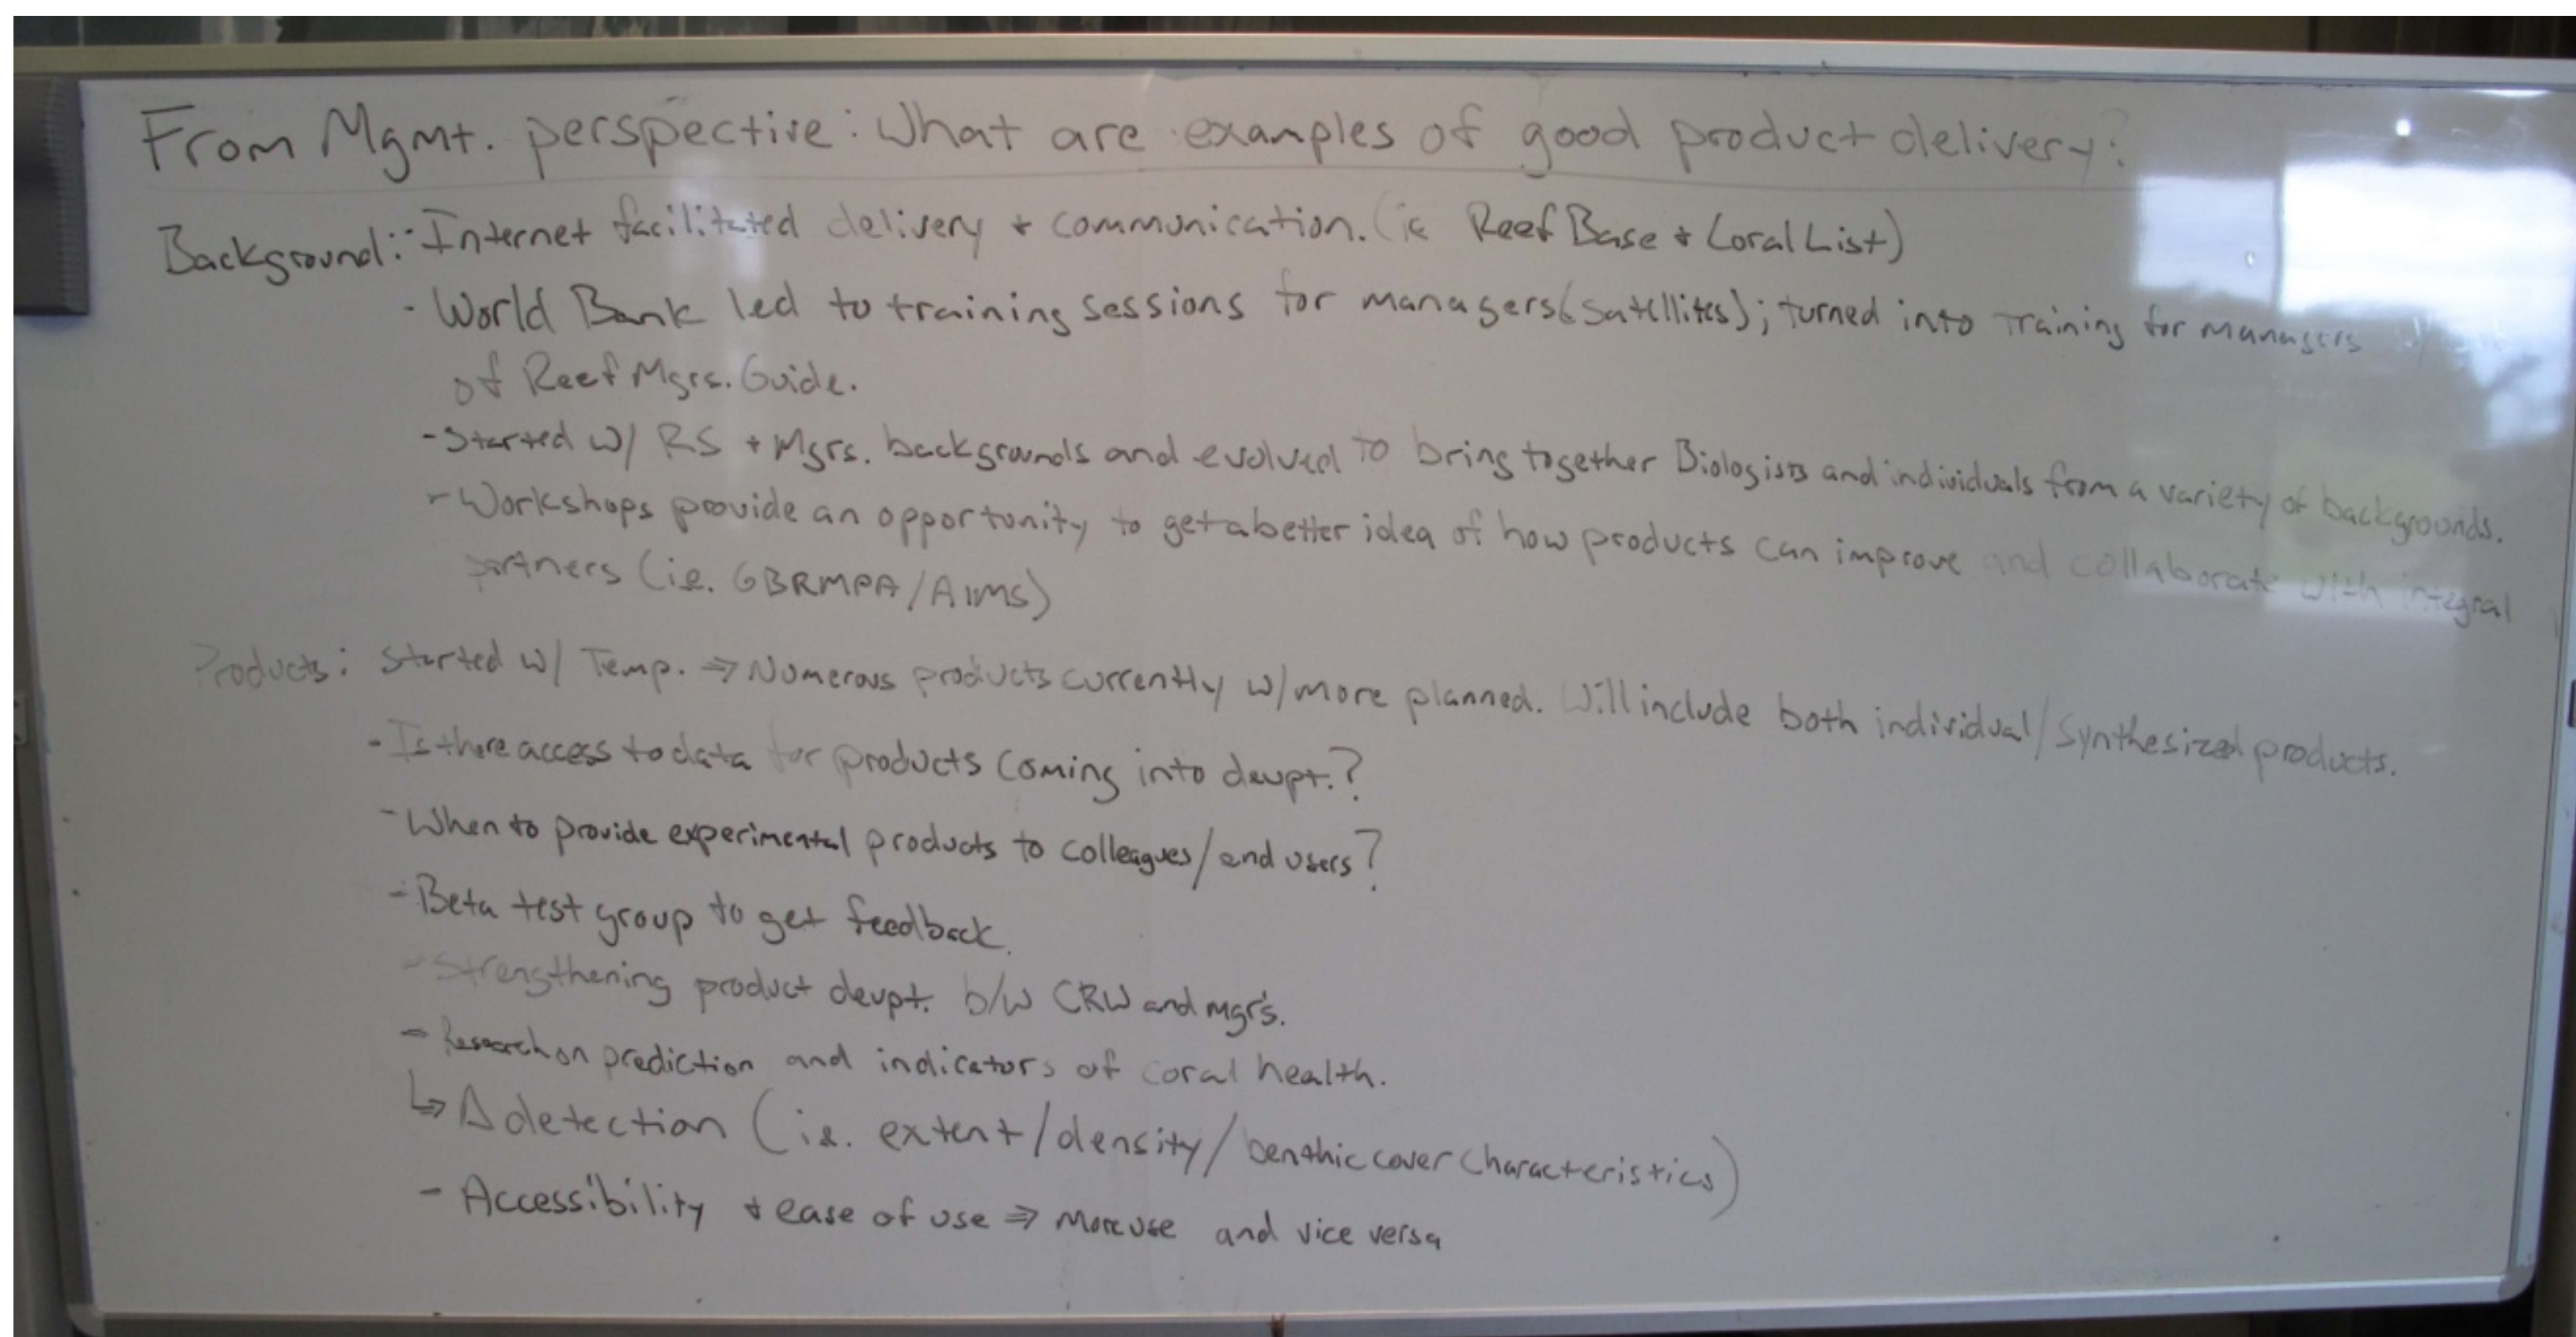 From Mgmt. perspective: What are examples of good product delivery?
Background: - Internet facilitated delivery + communication. (ie ReefBase + Coral List)
- World Bank led to training sessions for managers (satellites); turned into training for managers
of Reef Mgrs. Guide.
- Started w/ RS + Mgrs. backgrounds and evolved to bring together Biologists and individuals from a variety of backgrounds.
- Workshops provide an opportunity to get a better idea of how products can improve and collaborate with integral
partners (ie. GBRMPA/AIMS)
Products: Started w/ Temp. ⇒ Numerous products currently w/ more planned. Will include both individual/synthesized products.
- Is there access to data for products coming into devpt.?
- When to provide experimental products to colleagues/end users?
- Beta test group to get feedback.
- Strengthening product devpt. b/w CRW and mgr's.
- Research on prediction and indicators of coral health.
↳ Δ detection (i.e. extent/density/benthic cover characteristics)
- Accessibility + ease of use ⇒ More use and vice versa